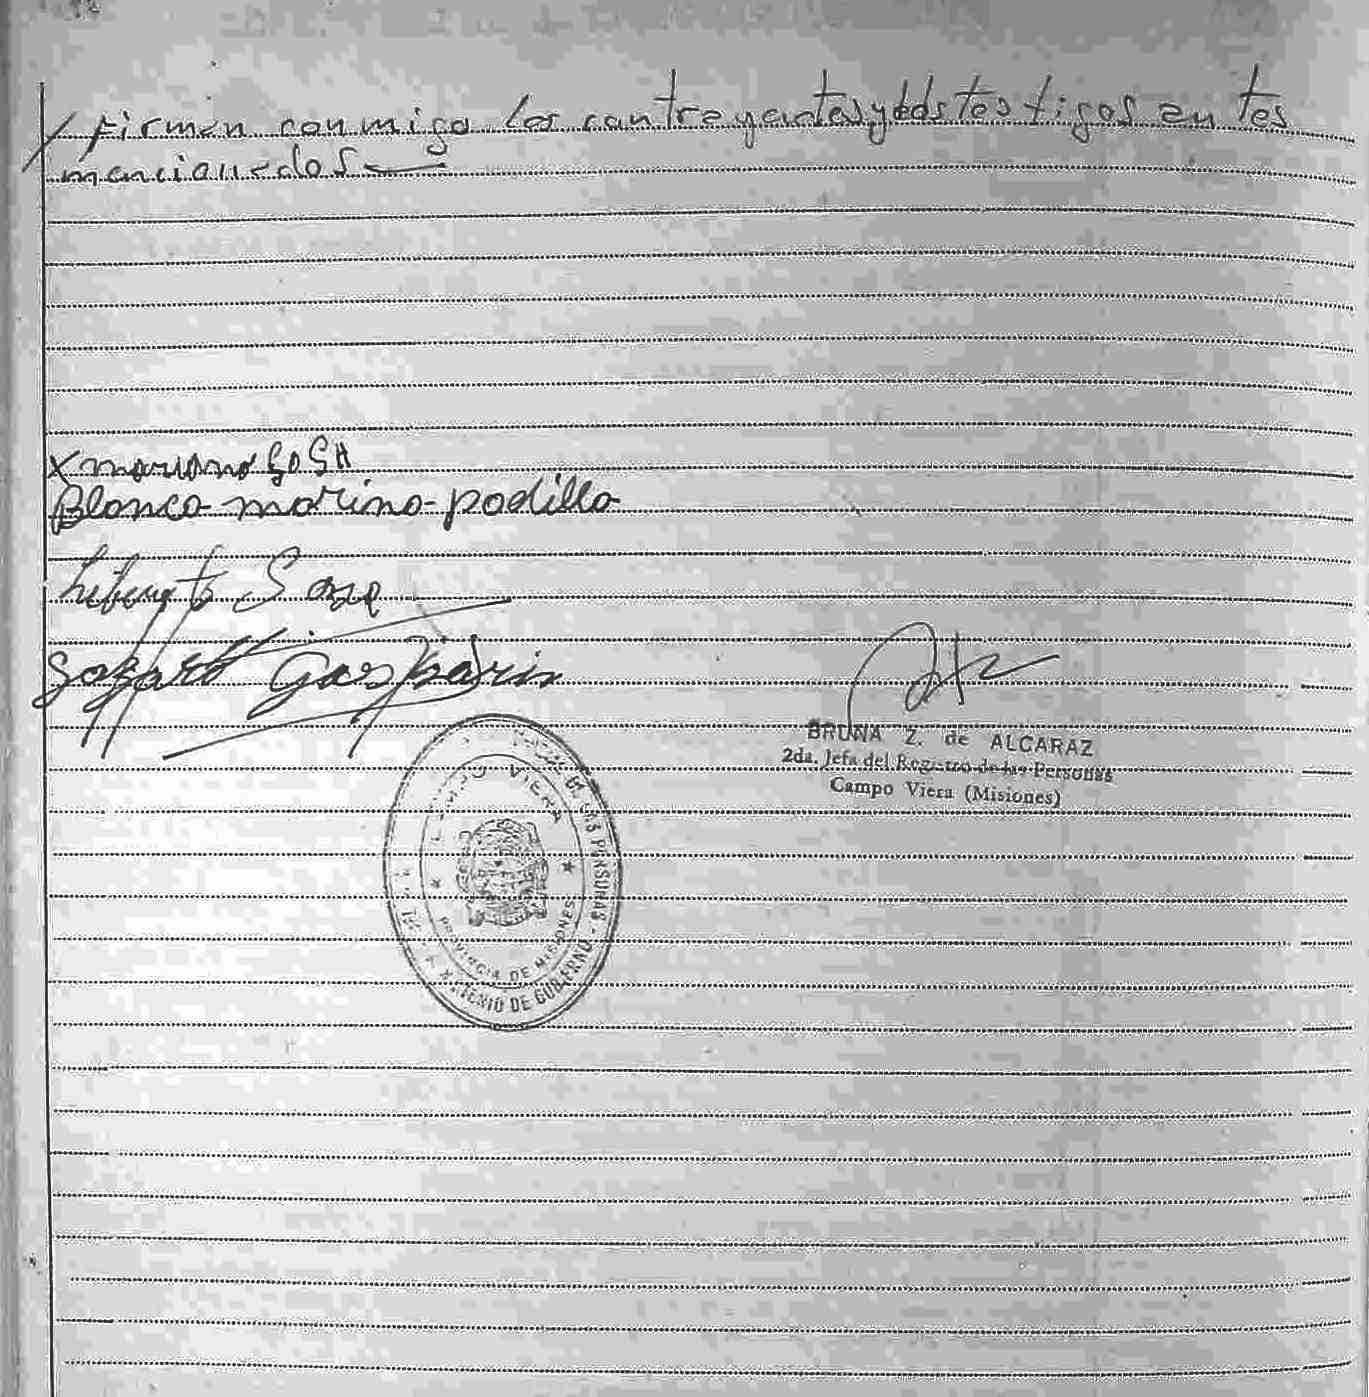 / firman conmigo los contrayentes y los testigos antes
mencionados
X mariano SOSA
Blanca marina padilla
Liberato Sosa
Gaspárin
BRUNA Z. de ALCARAZ
2da. Jefa del Registro de las Personas
Campo Viera (Misiones)
CAMPO VIERA
DE LAS PERSONAS -
PROVINCIA DE MISIONES
DE GOBIERNO